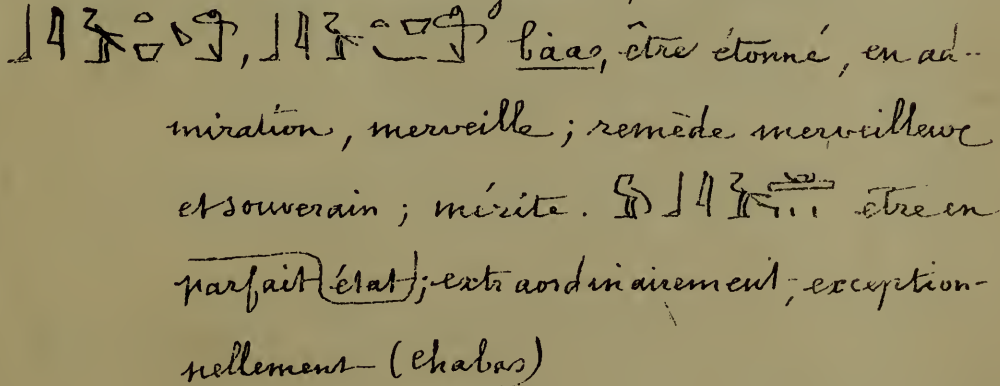 bàas, être étonné, en ad-
miration, merveille ; remède merveilleux
et souverain ; mérite. être en
parfait état ; extraordinairement, exception-
nellement (Chabas)